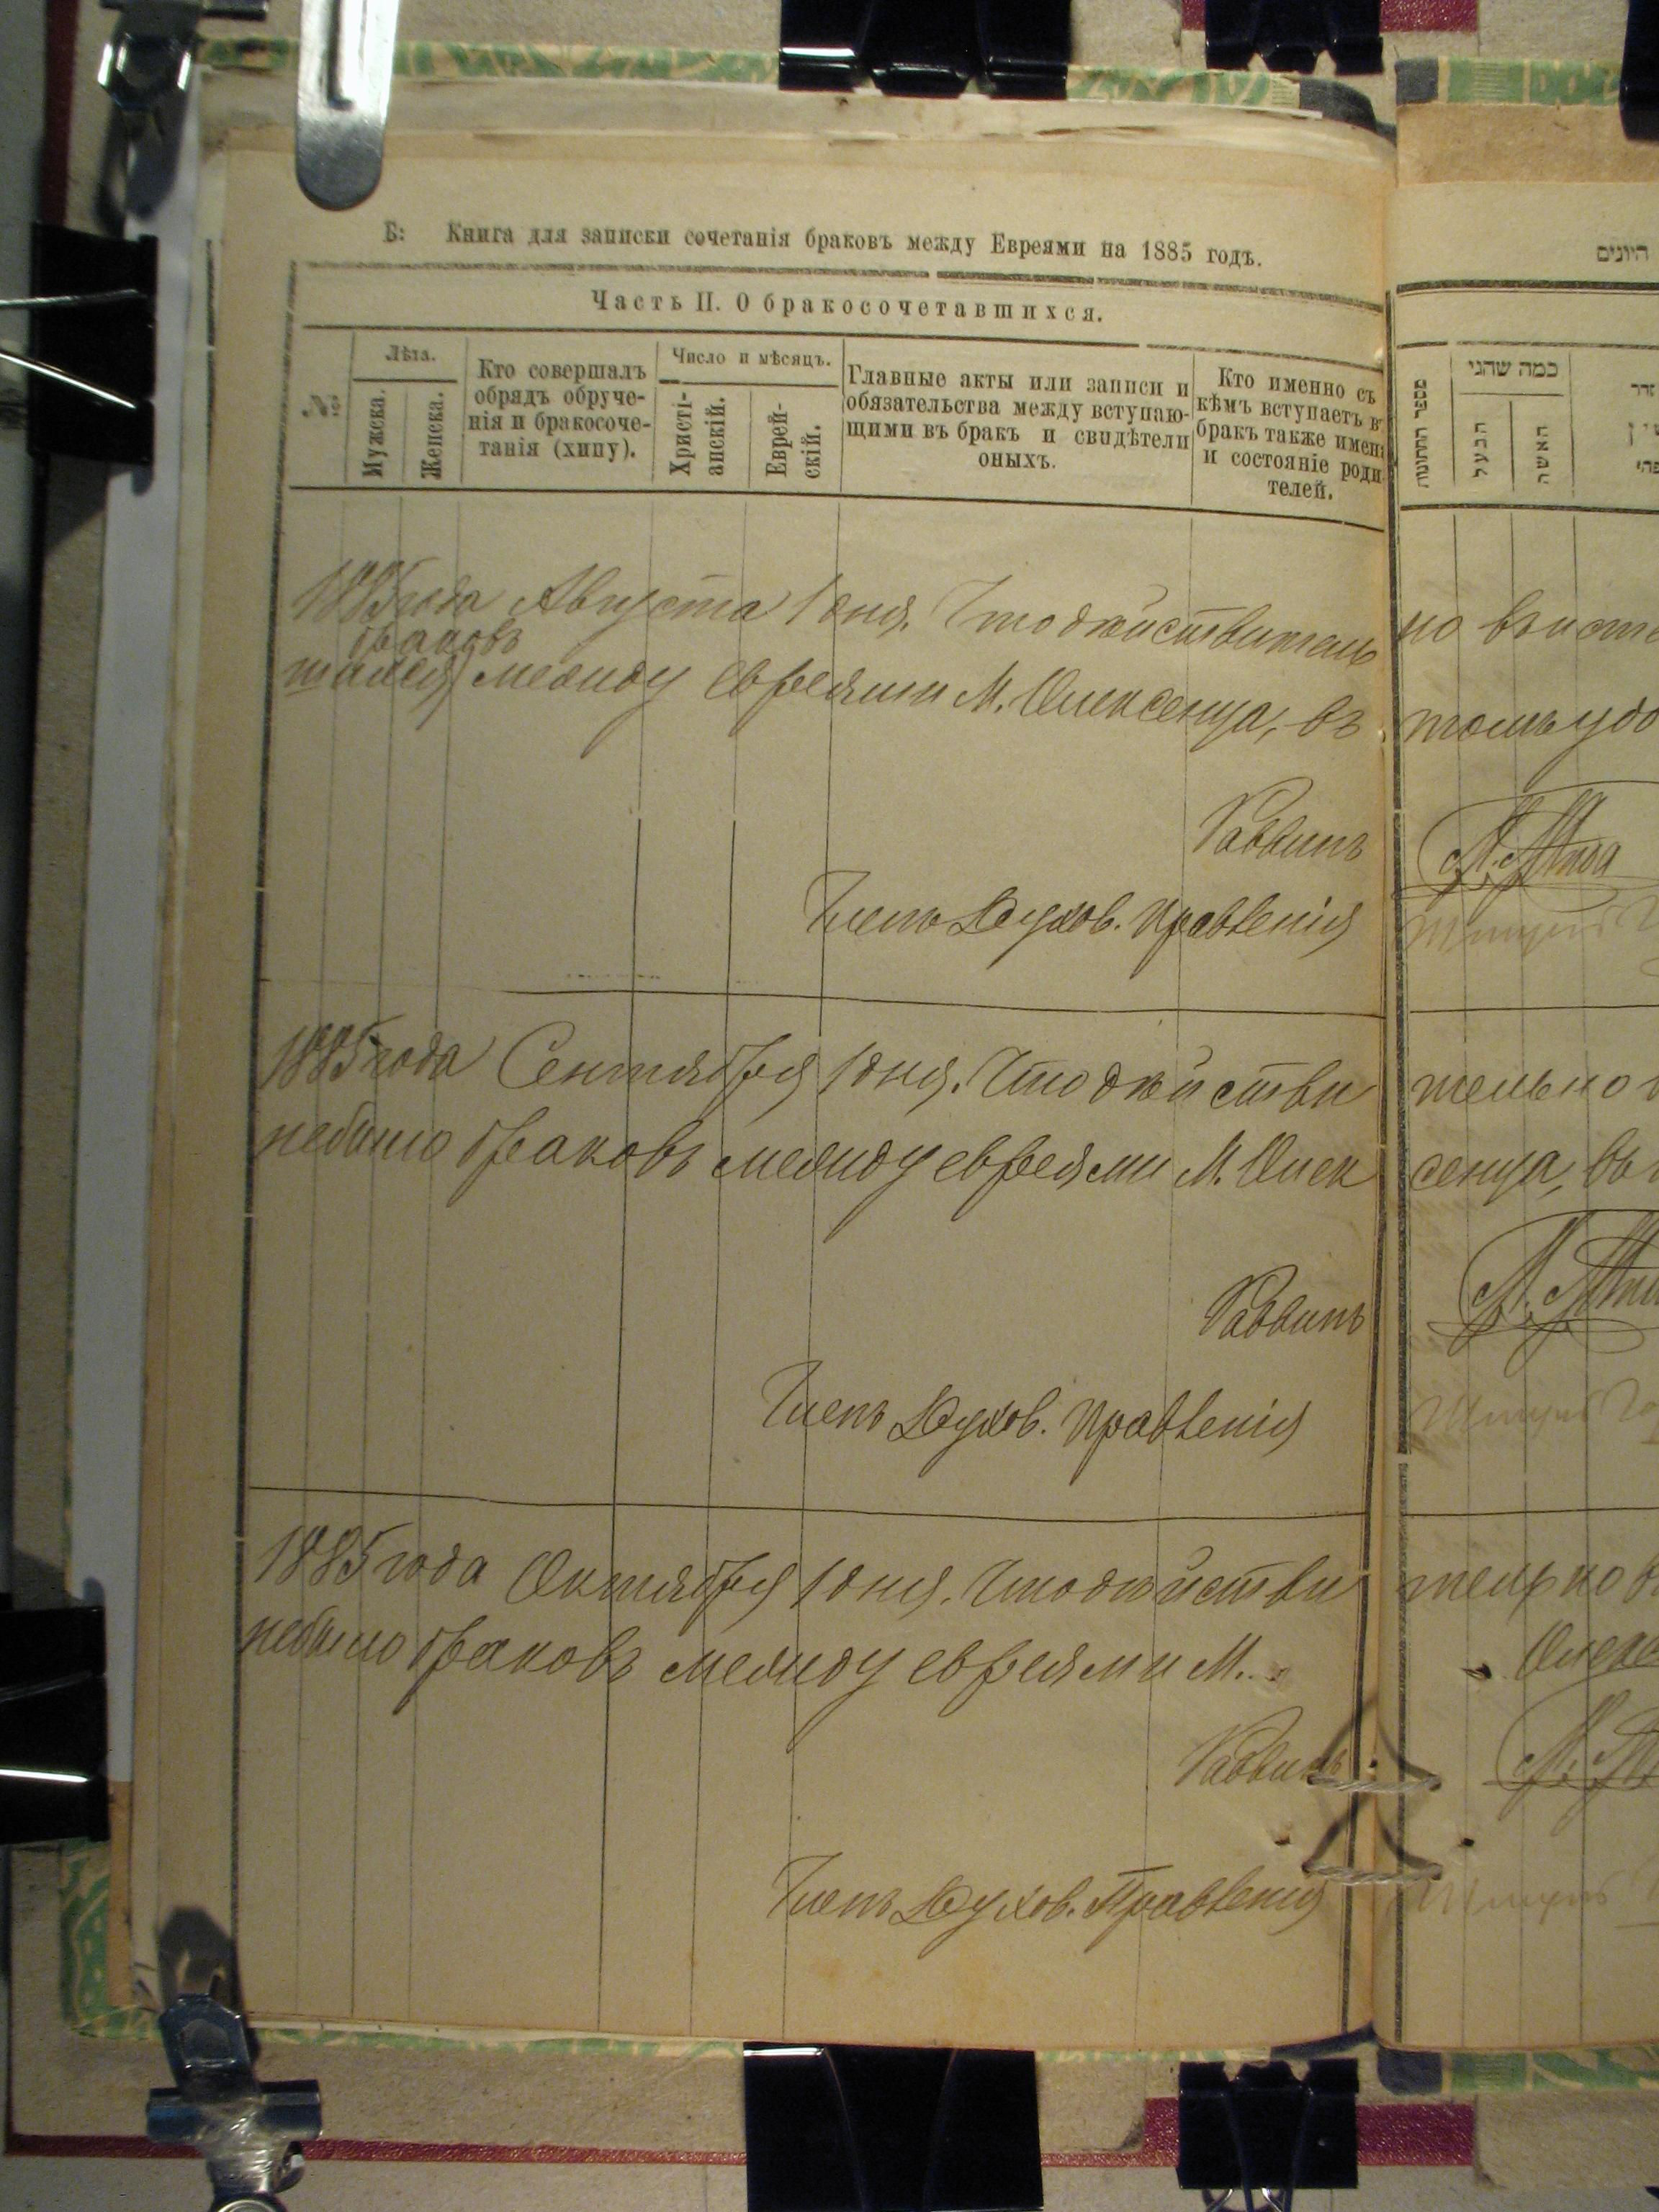 Б: Книга для записки сочетанія браковъ между Евреями на 1885 годъ.
Часть II. О бракосочетавшихся.
№
Лѣта.
Мужска.
Женска.
Кто совершалъ
обрядъ обруче-
нія и бракосоче-
танія (хипу).
Число и мѣсяцъ.
Христі-
анскій.
Еврей-
скій.
Главные акты или записи и
обязательства между вступаю-
щими въ бракъ и свидѣтели
оныхъ.
Кто именно съ
кѣмъ вступаетъ в
бракъ также имен
и состояніе роди
телей.
1885 года Августа 1 дня. Что дѣйствитель
браковъ
между евреями М. Олексенца, въ
Раввинъ
Членъ Духов. Правленія
1885 года Сентября 1 дня. Что дѣйстви
небыло браковъ между евреями М. Олек
Раввинъ
Членъ Духов. Правленія
1885 года Октября 1 дня. Что дѣйстви
небыло браковъ между евреями М.
Раввинъ
Членъ Духов. Правленія
היונים
מספר החתונות
כמה שהני
הבעל
האשה
но
томъ
тельно
сенца, въ
тельно